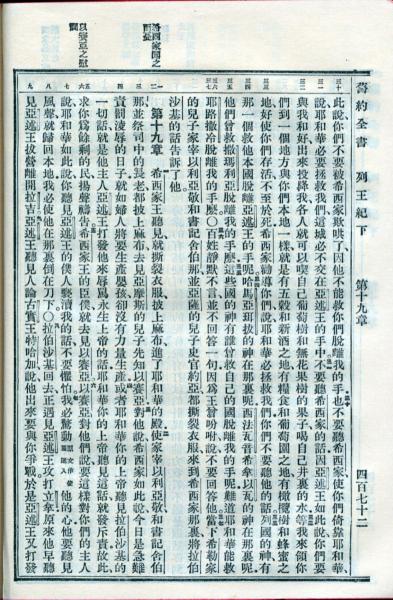 舊約全書 列王紀下 第十九章 四百七十二
此說你們不要被希西家欺哄了因他不能救你們脫離我的手也不要聽希西家使你們倚靠耶和華
說耶和華必要拯救我們這城必不交在亞述王的手中不要聽希西家的話因亞述王如此說你們要
與我和好出來投降我各人就可以喫自己葡萄樹和無花果樹的果子喝自己井裏的水等我來領你
們到一個地方與你們本地一樣就是有五穀和新酒之地有糧食和葡萄園之地有橄欖樹和蜂蜜之
地好使你們存活不至於死希西家勸導你們說耶和華必拯救我們你們不要聽他的話列國的神有
那一個救他本國脫離亞述王的手呢哈馬亞珥拔的神在那裏呢西法瓦音希拿以瓦的神在那裏呢
他們曾救撒瑪利亞脫離我的手麼這些國的神有誰曾救自己的國脫離我的手呢難道耶和華能救
耶路撒冷脫離我的手麼○百姓靜默不言並不回答一句因為王曾吩咐說不要回答他當下希勒家
的兒子家宰以利亞敬和書記舍伯那並亞薩的兒子史官約亞都撕裂衣服來到希西家那裏將拉伯
沙基的話告訴了他
第十九章 希西家王聽見就撕裂衣服披上麻布進了耶和華的殿使家宰以利亞敬和書記舍伯
那並祭司中的長老都披上麻布去見亞摩斯的兒子先知以賽亞對他說希西家如此說今日是急難
責罰凌辱的日子就如婦人將要生產嬰孩卻沒有力量生產或者耶和華你的上帝聽見拉伯沙基的
一切話就是他主人亞述王打發他來辱罵永生上帝的話耶和華你的上帝聽見這話就發斥責故此
求你為餘剩的民揚聲禱告希西家王的臣僕就去見以賽亞以賽亞對他們說要這樣對你們的主人
說耶和華如此說你聽見亞述王的僕人褻瀆我的話不要懼怕我必驚動原文作使靈進入他的心他要聽見
風聲就歸回本地我必使他在那裏倒在刀下○拉伯沙基回去正遇見亞述王攻打立拿原來他早聽
見亞述王拔營離開拉吉亞述王聽見人論古實王特哈加說他出來要與你爭戰於是亞述王又打發
以賽亞之慰